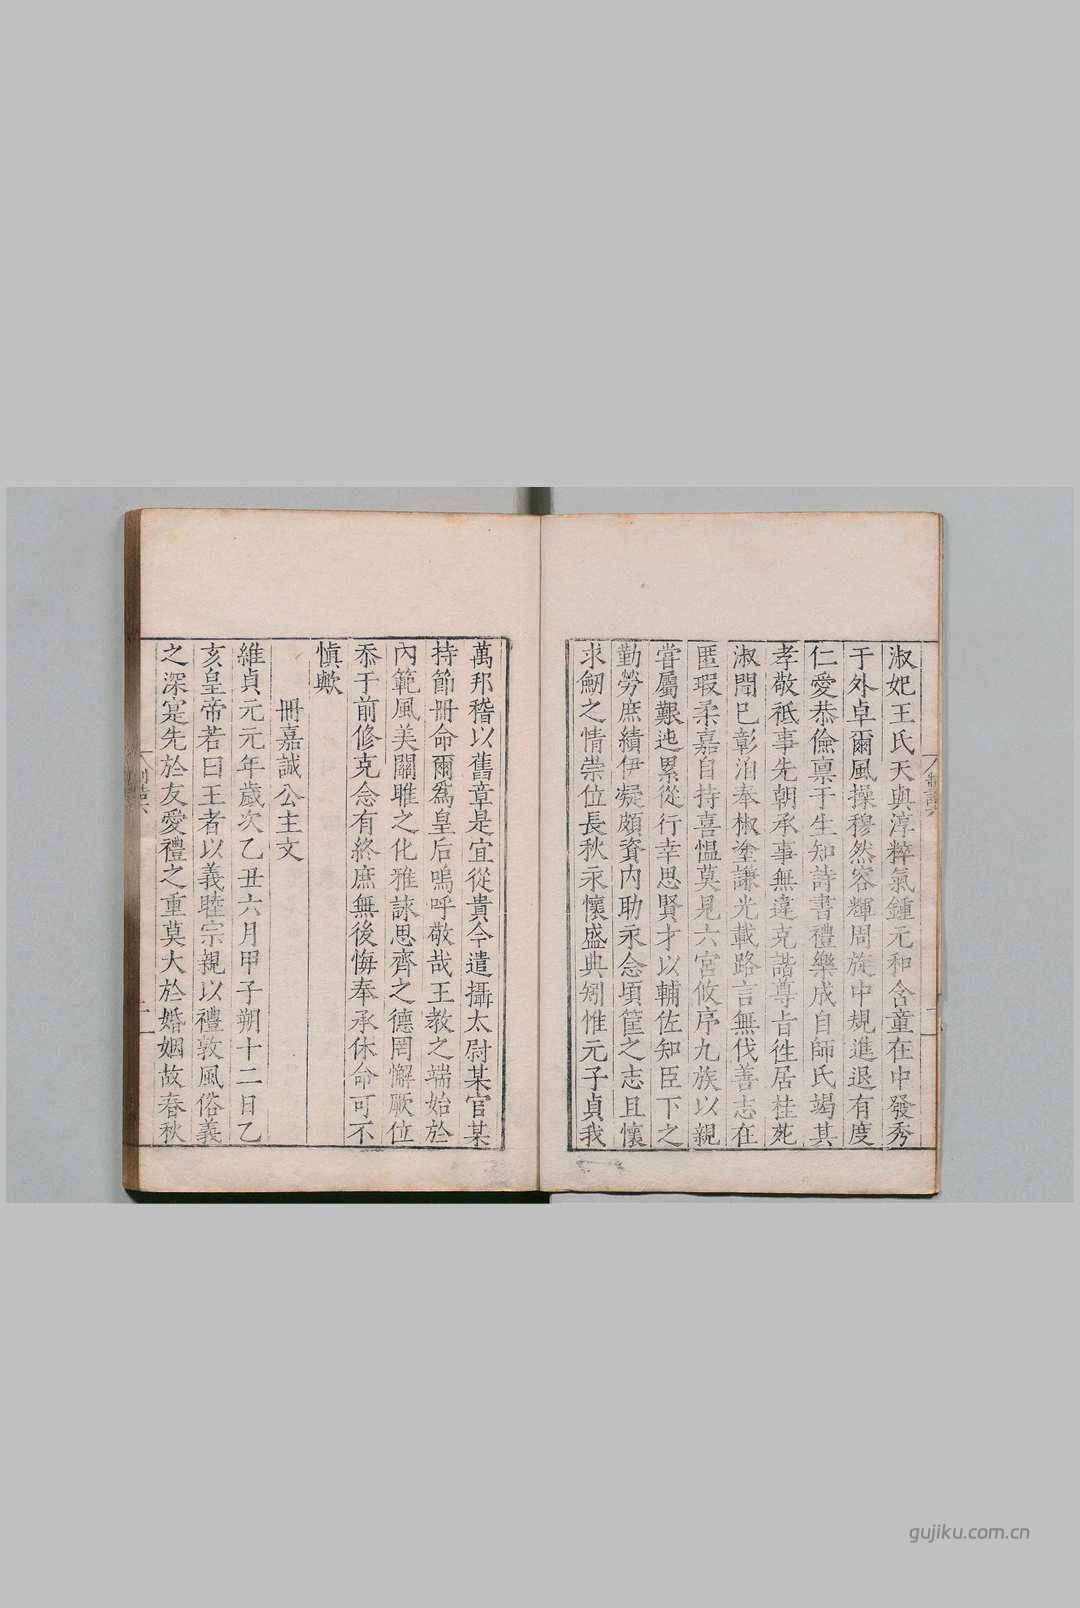 淑妃王氏天與淳粹氣鍾元和含童在中發秀
于外卓爾風操穆然容輝周旋中規進退有度
仁愛恭儉禀于生知詩書禮樂成自師氏竭其
孝敬祗事先朝承事無違克諧尊旨徃居桂苑
淑問已彰洎奉椒塗謙光載路言無伐善志在
匿瑕柔嘉自持喜愠莫見六宮攸序九族以親
甞屬艱迍累從行幸思賢才以輔佐知臣下之
勤勞庶績伊凝頗資内助永念頃筐之志且懷
求劒之情崇位長秋永懷盛典矧惟元子貞我
萬邦稽以舊章是宜從貴今遣攝太尉某官某
持節冊命爾爲皇后嗚呼敬哉王教之端始於
內範風美關雎之化雅詠思齊之德罔懈厥位
忝于前修克念有終庶無後悔奉承休命可不
慎歟
冊嘉誠公主文
維貞元元年歲次乙丑六月甲子朔十二日乙
亥皇帝若曰王者以義睦宗親以禮敦風俗義
之深寔先於友愛禮之重莫大於婚姻故春秋
gujiku.com.cn